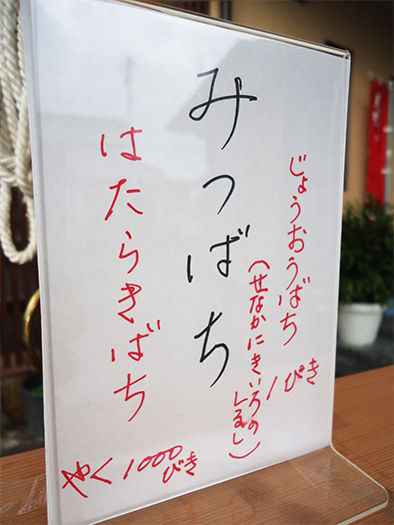 じょうおうばち
1ぴき
(せなかにきいろの
しるし)
みつばち
はたらきばち
やく1000
びき